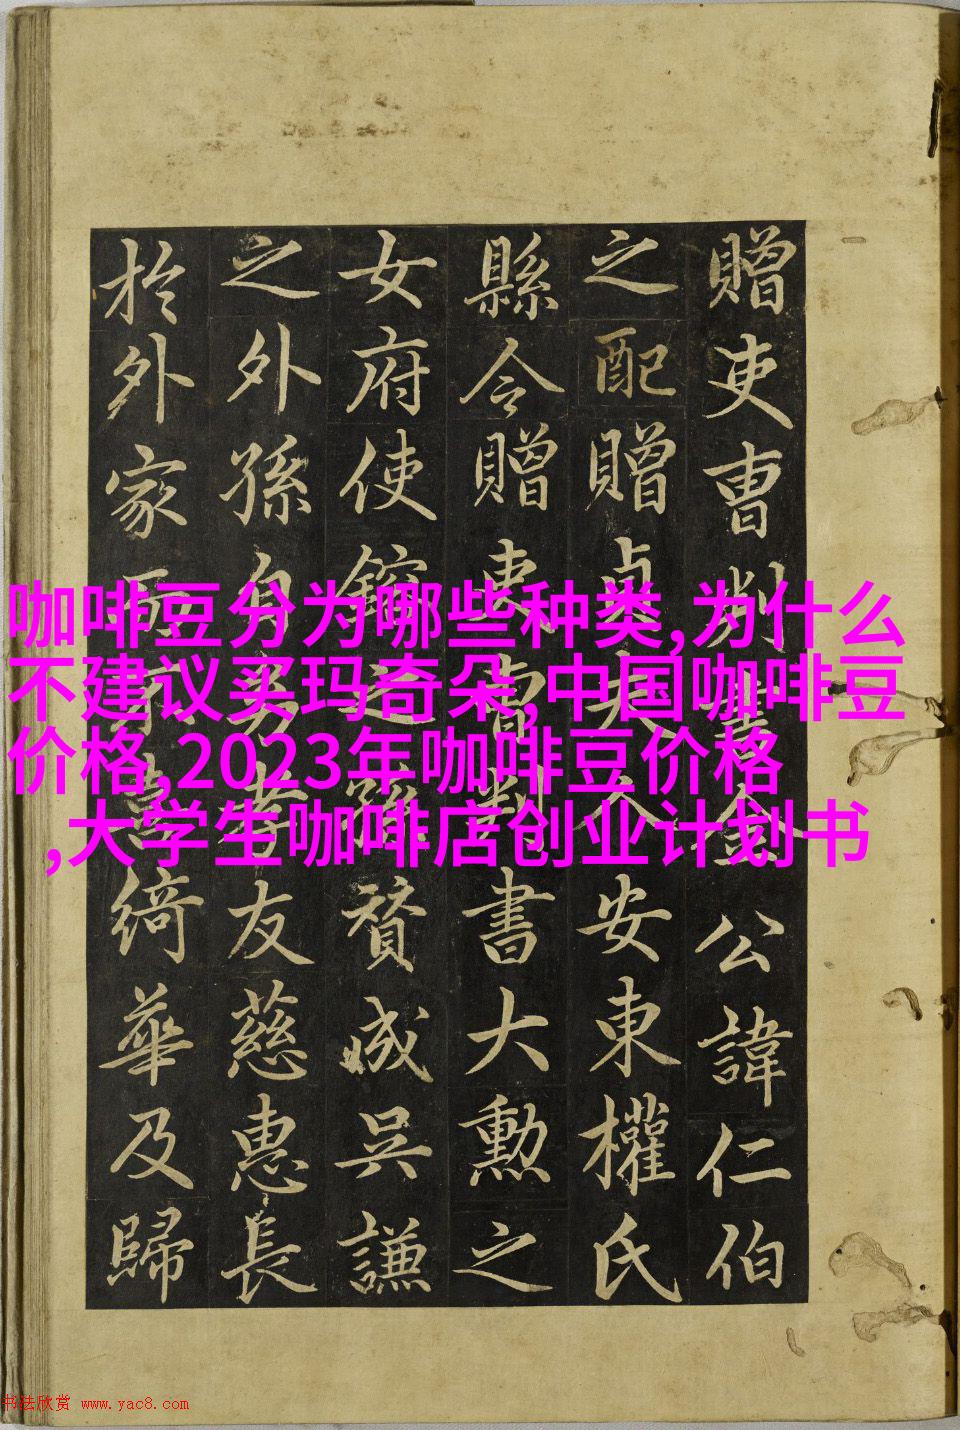 贈吏曹判書金公諱仁伯
之配贈貞夫人安東權氏
縣令贈吏曹判書大勲之
女府使之孫賛成吳謙
之外孫自孝友慈惠長
於外家綺華及歸
咖啡豆分为哪些种类,为什么
不建议买玛奇朵,中国咖啡豆
价格,2023年咖啡豆价格
,大学生咖啡店创业计划书
书法欣赏 www.yac8.com